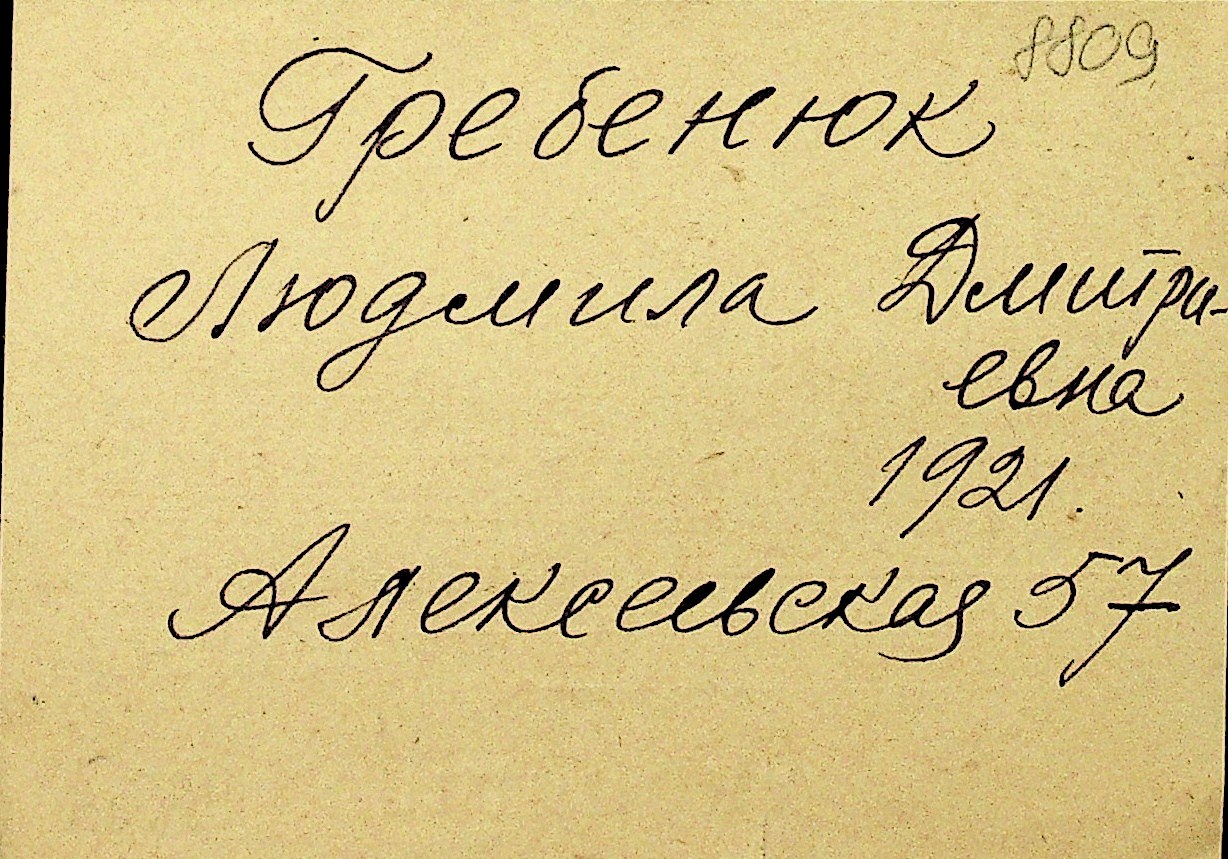 8809
Гребенюк
Людмила Дмитри-
евна
1921.
Алексеевская 57